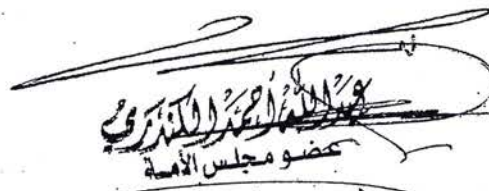 عبدالله أحمد الكندري
عضو مجلس الأمة